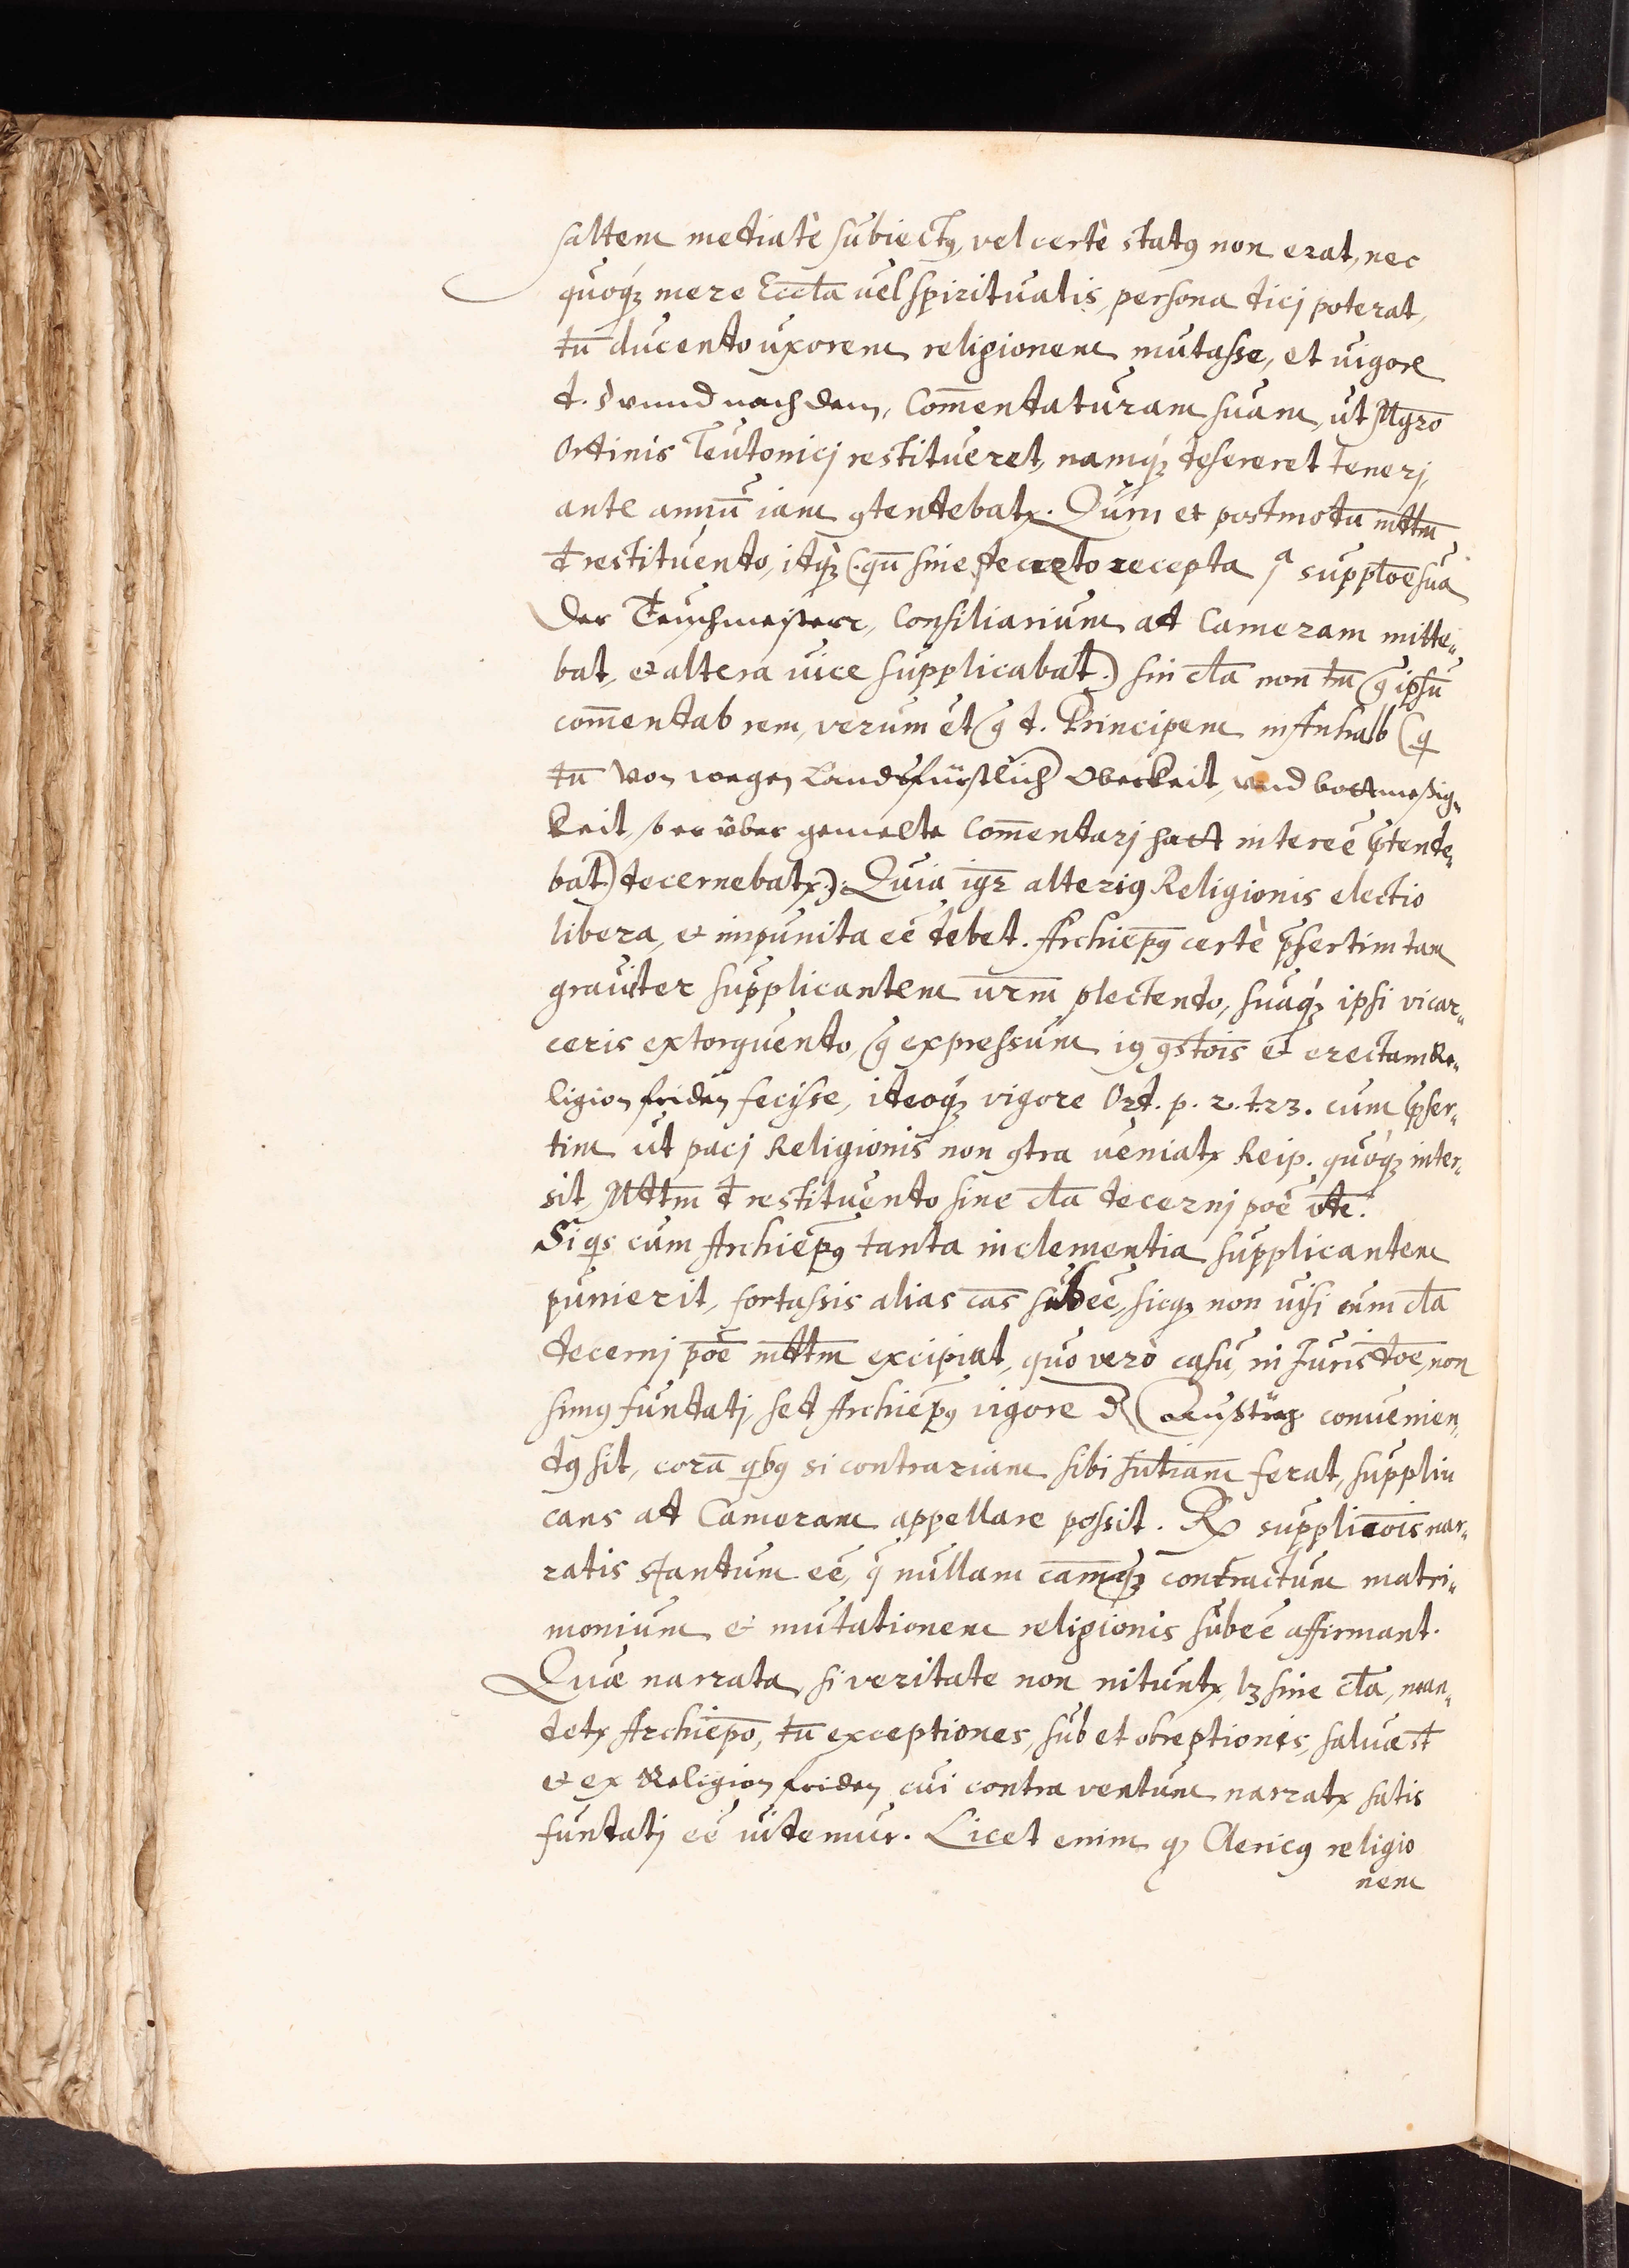 saltem mediatè subiectꝰ, vel certè statꝰ non erat, nec
quoqꝫ mere Eccl̄a uel spiritualis, persona dicj poterat,
tū ducendo uxorem religionem mutasse, et uigore
d. § vnnd nach dem, Com̄endaturam suam, ut Mgrō
Ordinis Teutonicj restitueret, namqꝫ desereret tenerj,
ante annū iam ꝯtendebatr. Qum et postmodū mdtm̄
d̄ restituendo, itqꝫ (qū sine decreto recepta ꝑ suppl̄oe sua
Der Teuschmeisterr, Consiliarium ad Cameram mitte„
bat, et altera uice supplicabat.) sin cl̄a non tm̄ ꝯ ipsū
com̄endab rem, verum et ꝯ d. Principem in Anhalb (qi
tū von wegen Landsfürstlich Oberkeit, vnd bottmeßig„
keit, so er über gemelte Com̄endarj hatt intereē p̄tende„
bat) decernebatr.) Quia igr̄ alteriꝰ Religionis electio
libera, et impunita eē debet. Archiep̄ꝰ certè p̄sertim tam
grauiter supplicantem ur̄m plectendo, suaqꝫ ipsi vi car„
ceris extorquendo, ꝯ expressum iꝰ ꝯst̄ois et erectam Re„
ligion friden fecisse, ideoqꝫ vigore Ord. p. 2. t. 23. cum p̄ser„
tim ut pacj Religionis non ꝯtra ueniatr Reip. quoqꝫ inter„
sit, Mdtm̄ d̄ restituendo sine cl̄a decernj poē
Si qs cum Archiep̄ꝰ tanta inclementia supplicantem
punierit, fortassis alias cās subeē, sicqꝫ non nisi cum cl̄a
decernj poē mdtm̄ excipiat, quo verò casu, in Jurisd̄oe, non
simꝰ fundatj, sed Archiep̄ꝰ uigore d Austräg conuenien„
dꝰ sit, corā qbꝰ si contrariam sibi sn̄tiam ferat, suppli„
cans ad Cameram appellare possit. Rx supplic̄ois nar„
ratis standum eē, q̄ nullam cam̄qꝫ contractum matri„
monium et mutationem religionis subeē affirmant.
Quæ narrata, si veritate non nituntr, lꝫ sine cl̄a, man„
detr Archiep̄o, tū exceptiones, sub et obreptionis, saluæ st̄
et ex Religion friden cui contra ventum narratr satis
fundatj eē uidemur. Licet enim qꝫ Clericꝰ religio
nem